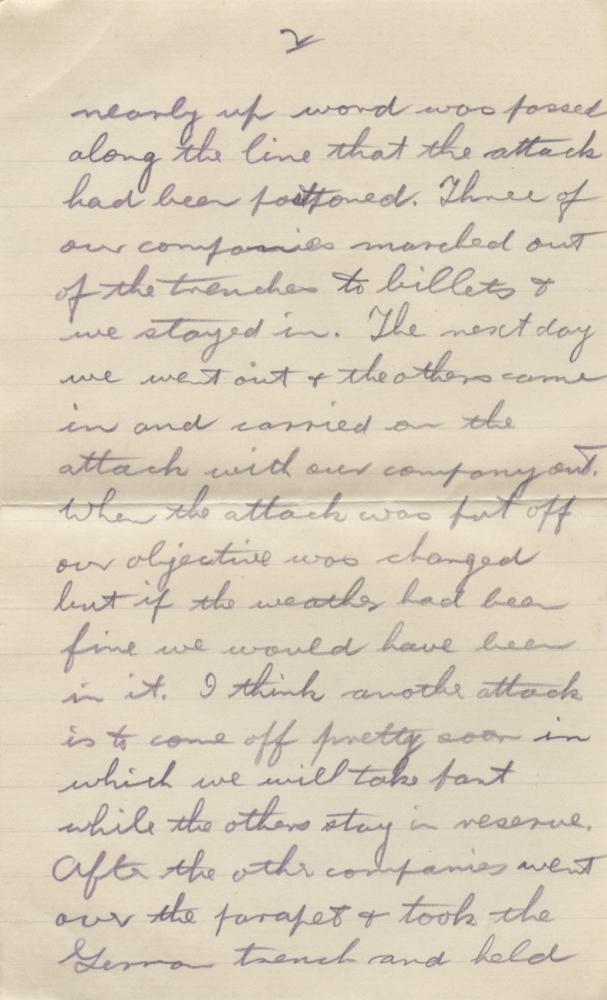 2
nearly up word was passed
along the line that the attack
had been postponed. Three of
our companies marched out
of the trenches to billets &
we stayed in. The next day
we went out & the others came
in and carried on the
attack with our company out.
When the attack was put off
our objective was changed
but if the weather had been
fine we would have been
in it. I think anothe attack
is to come off pretty soon in
which we will take part
while the others stay in reserve.
After the other companies went
over the parapet & took the
German trench and held